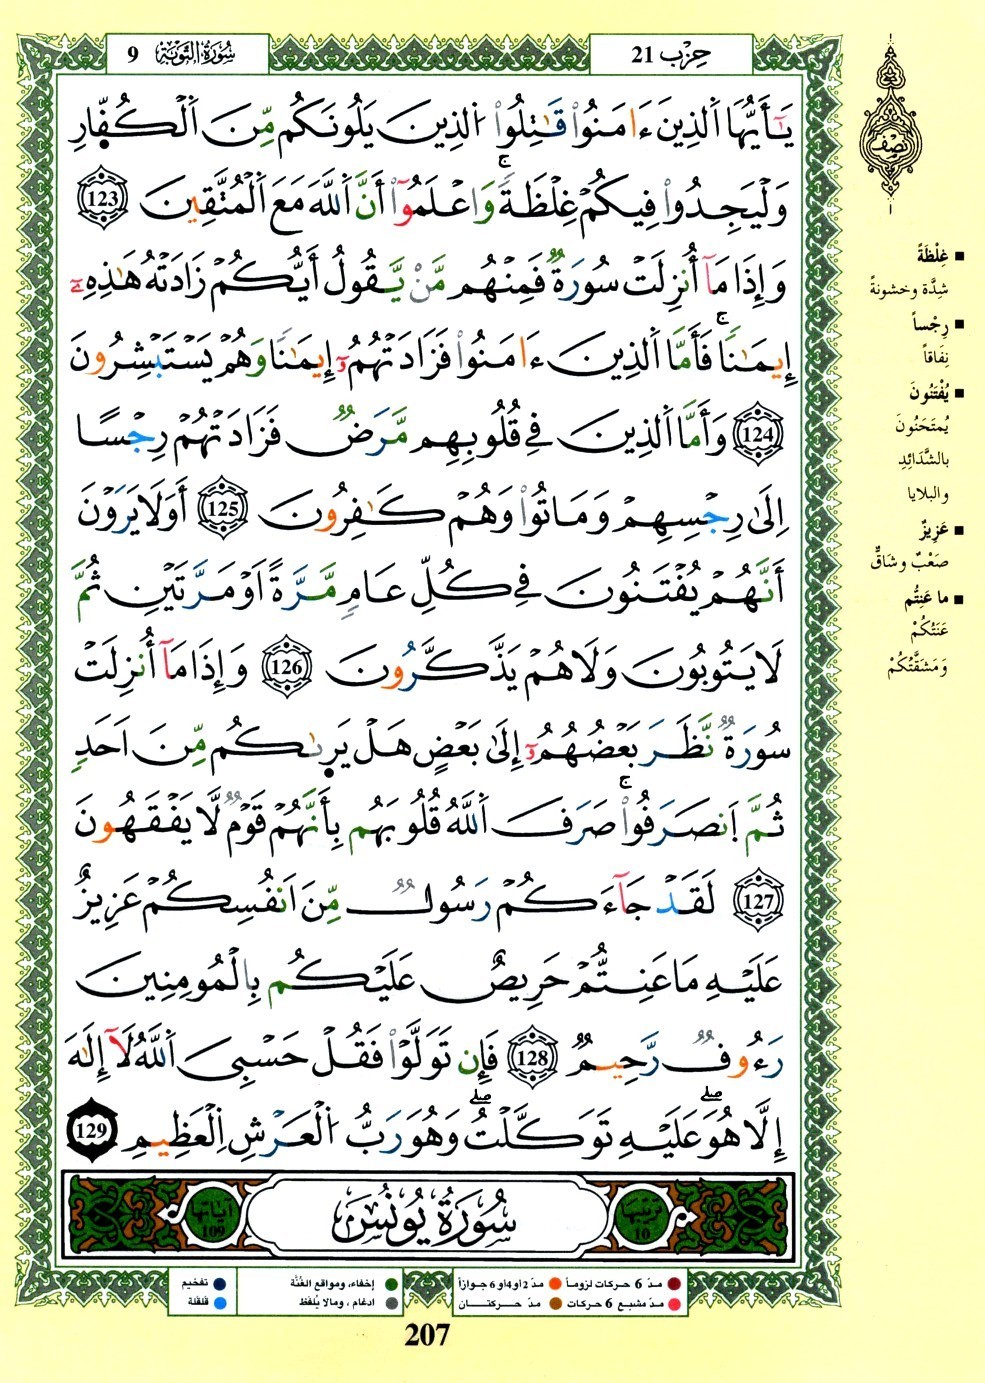 سُورَةُ التَّوْبَة 9
حِزْب 21
نِصْف
يَٰٓأَيُّهَا اَ۬لذِينَ ءَامَنُواْ قَٰتِلُواْ اُ۬لذِينَ يَلُونَكُم مِّنَ اَ۬لْكُفّ۪ارِ
وَلْيَجِدُواْ فِيكُمْ غِلْظَةٗۖ وَاعْلَمُوٓاْ أَنَّ اَ۬للَّهَ مَعَ اَ۬لْمُتَّقِينَ 123
وَإِذَا مَآ أُنزِلَتْ سُورَةٞ فَمِنْهُم مَّنْ يَّقُولُ أَيُّكُمْ زَادَتْهُ هَٰذِهِۦٓ
إِيمَٰناٗۖ فَأَمَّا اَ۬لذِينَ ءَامَنُواْ فَزَادَتْهُمُۥٓ إِيمَٰناٗ وَهُمْ يَسْتَبْشِرُونَ
124 وَأَمَّا اَ۬لذِينَ فِي قُلُوبِهِم مَّرَضٞ فَزَادَتْهُمْ رِجْساً
اِلَىٰ رِجْسِهِمْ وَمَاتُواْ وَهُمْ كَٰفِرُونَ 125 أَوَلَا يَرَوْنَ
أَنَّهُمْ يُفْتَنُونَ فِي كُلِّ عَامٖ مَّرَّةً اَوْ مَرَّتَيْنِ ثُمَّ
لَا يَتُوبُونَ وَلَا هُمْ يَذَّكَّرُونَ 126 وَإِذَا مَآ أُنزِلَتْ
سُورَةٞ نَّظَرَ بَعْضُهُمُۥٓ إِلَىٰ بَعْضٍ هَلْ يَر۪ىٰكُم مِّنَ اَحَدٖ
ثُمَّ اَ۪نصَرَفُواْۖ صَرَفَ اَ۬للَّهُ قُلُوبَهُم بِأَنَّهُمْ قَوْمٞ لَّا يَفْقَهُونَ
127 لَقَدْ جَآءَكُمْ رَسُولٞ مِّنَ اَنفُسِكُمْ عَزِيزٌ
عَلَيْهِ مَا عَنِتُّمْ حَرِيصٌ عَلَيْكُم بِالْمُومِنِينَ
رَءُوفٞ رَّحِيمٞ 128 فَإِن تَوَلَّوْاْ فَقُلْ حَسْبِيَ اَ۬للَّهُ لَآ إِلَٰهَ
إِلَّا هُوَۖ عَلَيْهِ تَوَكَّلْتُۖ وَهُوَ رَبُّ اُ۬لْعَرْشِ اِ۬لْعَظِيمِ 129
تَرتيبها 10
سُورَةُ يُونُسَ
آيَاتها 109
■ غِلْظَةً
شِدَّة وخشونةً
■ رِجْساً
نِفاقاً
■ يُفْتَنُونَ
يُمتَحَنُونَ
بالشَّدَائِدِ
والبلايا
■ عَزِيزٌ
صَعْبٌ وشَاقٌّ
■ ما عَنِتُّم
عَنَتُكُمْ
وَمَشَقَّتُكُمْ
مدّ 6 حركات لزوماً
مدّ 2 أو 4 أو 6 جوازاً
إخفاء، ومواقع الغُنَّة
تفخيم
مدّ مشبع 6 حركات
مدّ حركتان
ادغام، ومالا يُلفَظ
قلقلة
207